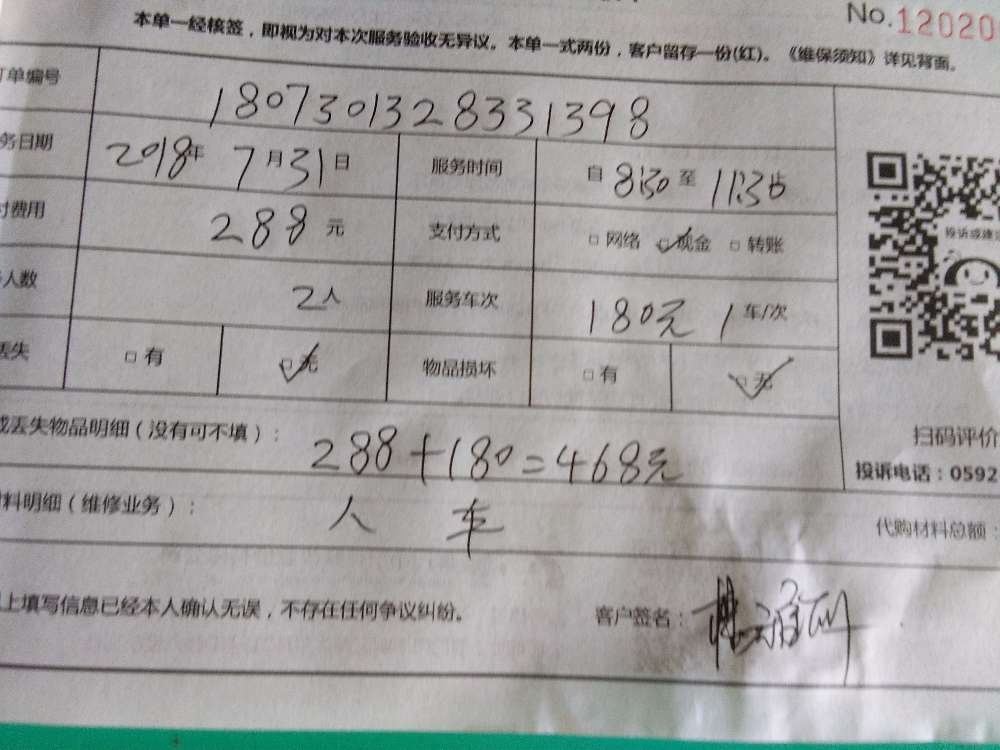 No.12020
本单一经核签，即视为对本次服务验收无异议。本单一式两份，客户留存一份(红)。《维保须知》详见背面。
单编号 180730132833​1398
务日期 2018年 7月31日 服务时间 自 8:30 至 11:30
费用 288 元 支付方式 □ 网络 ☑ 现金 □ 转账
投诉或建议
人数 2人 服务车次 180元 1 车/次
丢失 □ 有 ☑ 无 物品损坏 □ 有 ☑ 无
或丢失物品明细（没有可不填）： 288+180=468元
扫码评价
投诉电话：0592
料明细（维修业务）： 人 车
代购材料总额：
上填写信息已经本人确认无误，不存在任何争议纠纷。 客户签名：